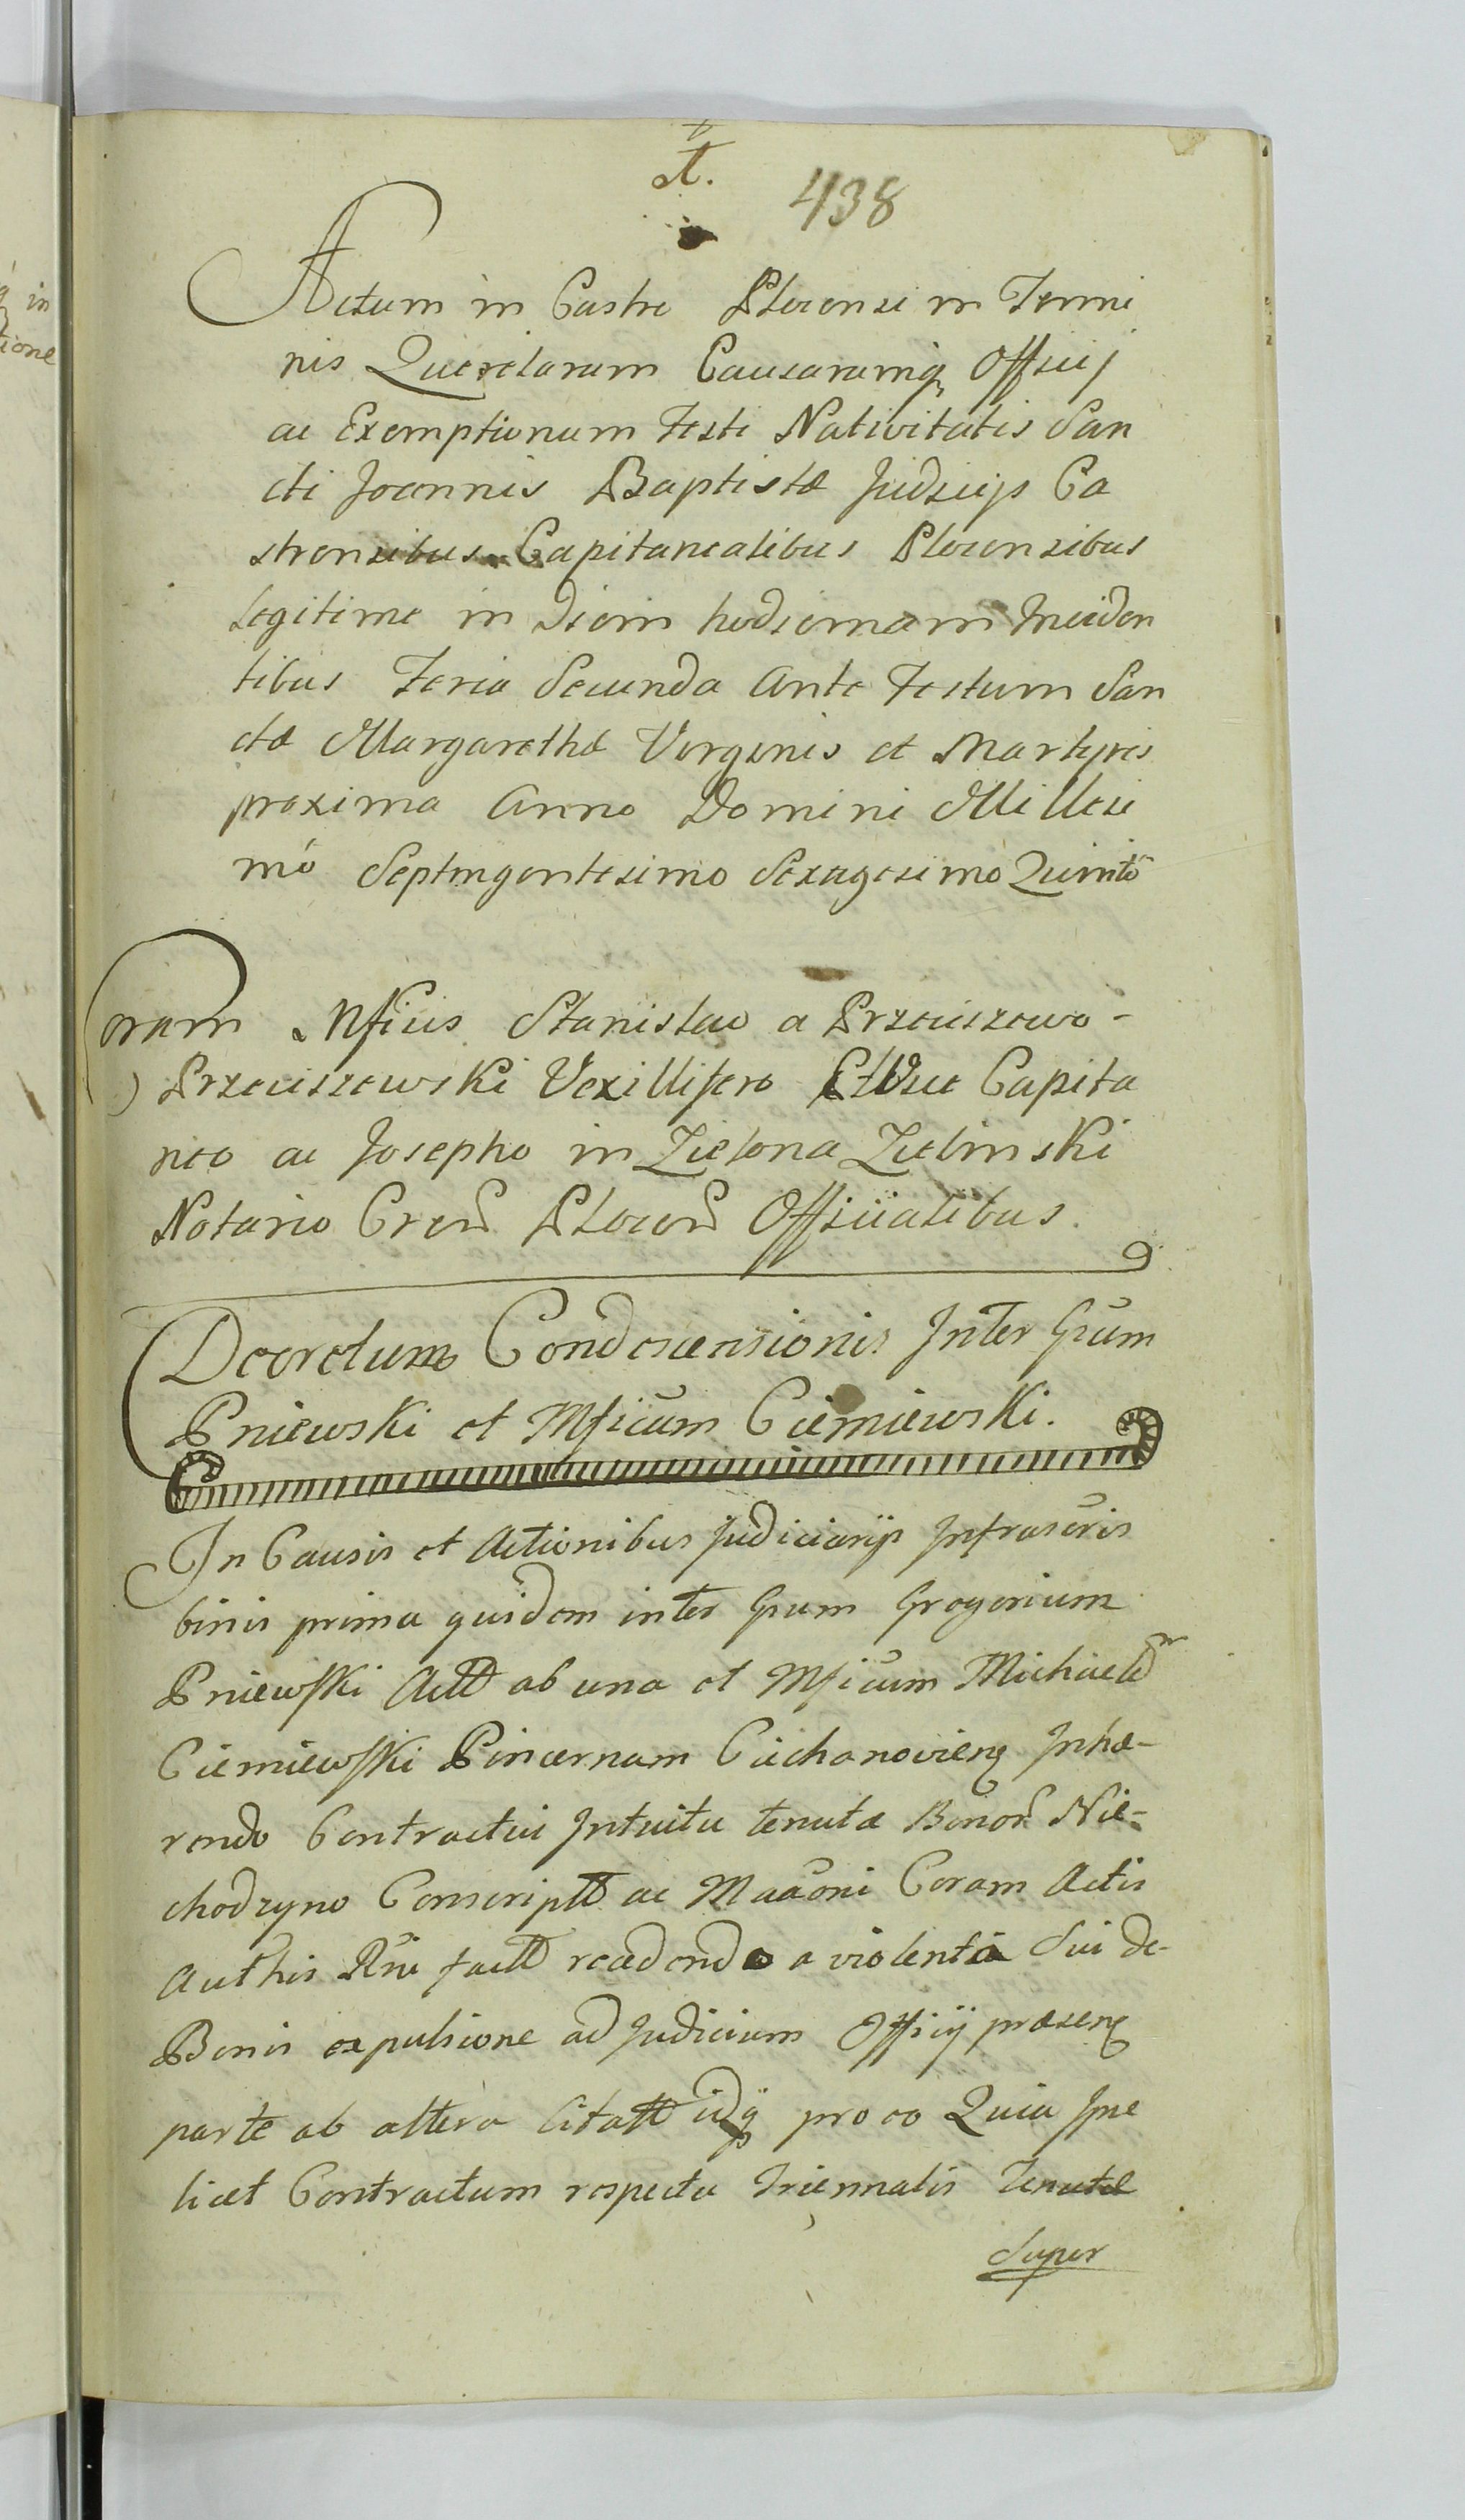 A.
438
Actum in Castro Plocensi in Termi
nis Querelarum Causarumq Officij
ac Exemptionum Festi Nativitatis San
cti Joannis Baptistæ Judicijs Ca
strensibus Capitanealibus Plocensibus
Legitime in Diem hodiernam Inciden
tibus Feria Secunda Ante Festum San
ctæ Margarethæ Virginis et Martyris
proxima Anno Domini Millesi
mó Septingentesimo Sexagesimó Quintó
Coram Mficis Stanislao a Przeciszewo -
Przeciszewski Vexillifero Vice Capita
neo ac Josepho in Zielona Zielinski
Notario Cren Plocen Officialibus.
Decretum Condescensionis Inter Gnum
Pniewski et Mficum Ciemiewski.
In Causis et Actionibus Judiciarijs Infrascris
binis prima quidem inter Gnum Gregorium
Pniewski Act ab una et Mficum Michaelem
Ciemiewski Pincernam Ciechanovien Inhæ-
rendo Contractui Intuitu tenutæ Bonor Nie-
chodzyno Conscript ac Maãoni Coram Actis
Authis Rni fact recedendo a violenta Sui de-
Bonis expulsione ad Judicium Officij præsen
parte ab altera Citatt idq pro eo Quia Ipse
licet Contractum respectu Triennalis Tenutæ
Super
in
tione